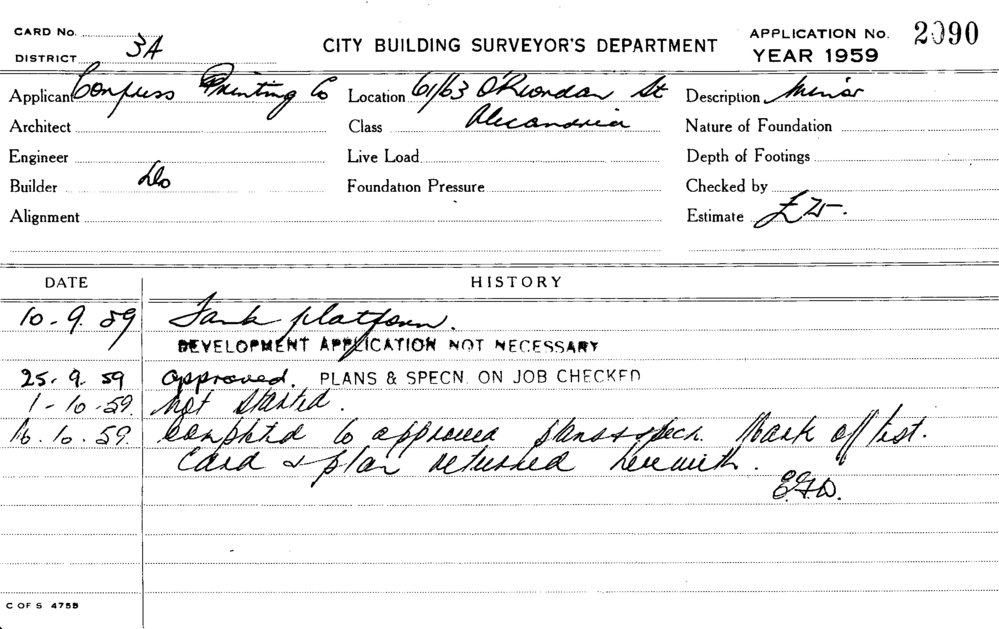 CARD No.
DISTRICT 3A
CITY BUILDING SURVEYOR'S DEPARTMENT
APPLICATION No. 2090
YEAR 1959
Applicant Conpress Printing Co
Location 61/63 O'Riordan St
Alexandria
Description Minor
Architect
Class
Nature of Foundation
Engineer
Live Load
Depth of Footings
Builder Do
Foundation Pressure
Checked by
Alignment
Estimate £75-.
DATE HISTORY
10-9.59 Tank platform.
DEVELOPMENT APPLICATION NOT NECESSARY
25-9-59 approved. PLANS & SPECN. ON JOB CHECKED
1-10-59. Not started.
16.10.59. Completed to approved plans & specn. Mark off list.
Card & plan returned herewith.
E.G.D.
C OF S 475B